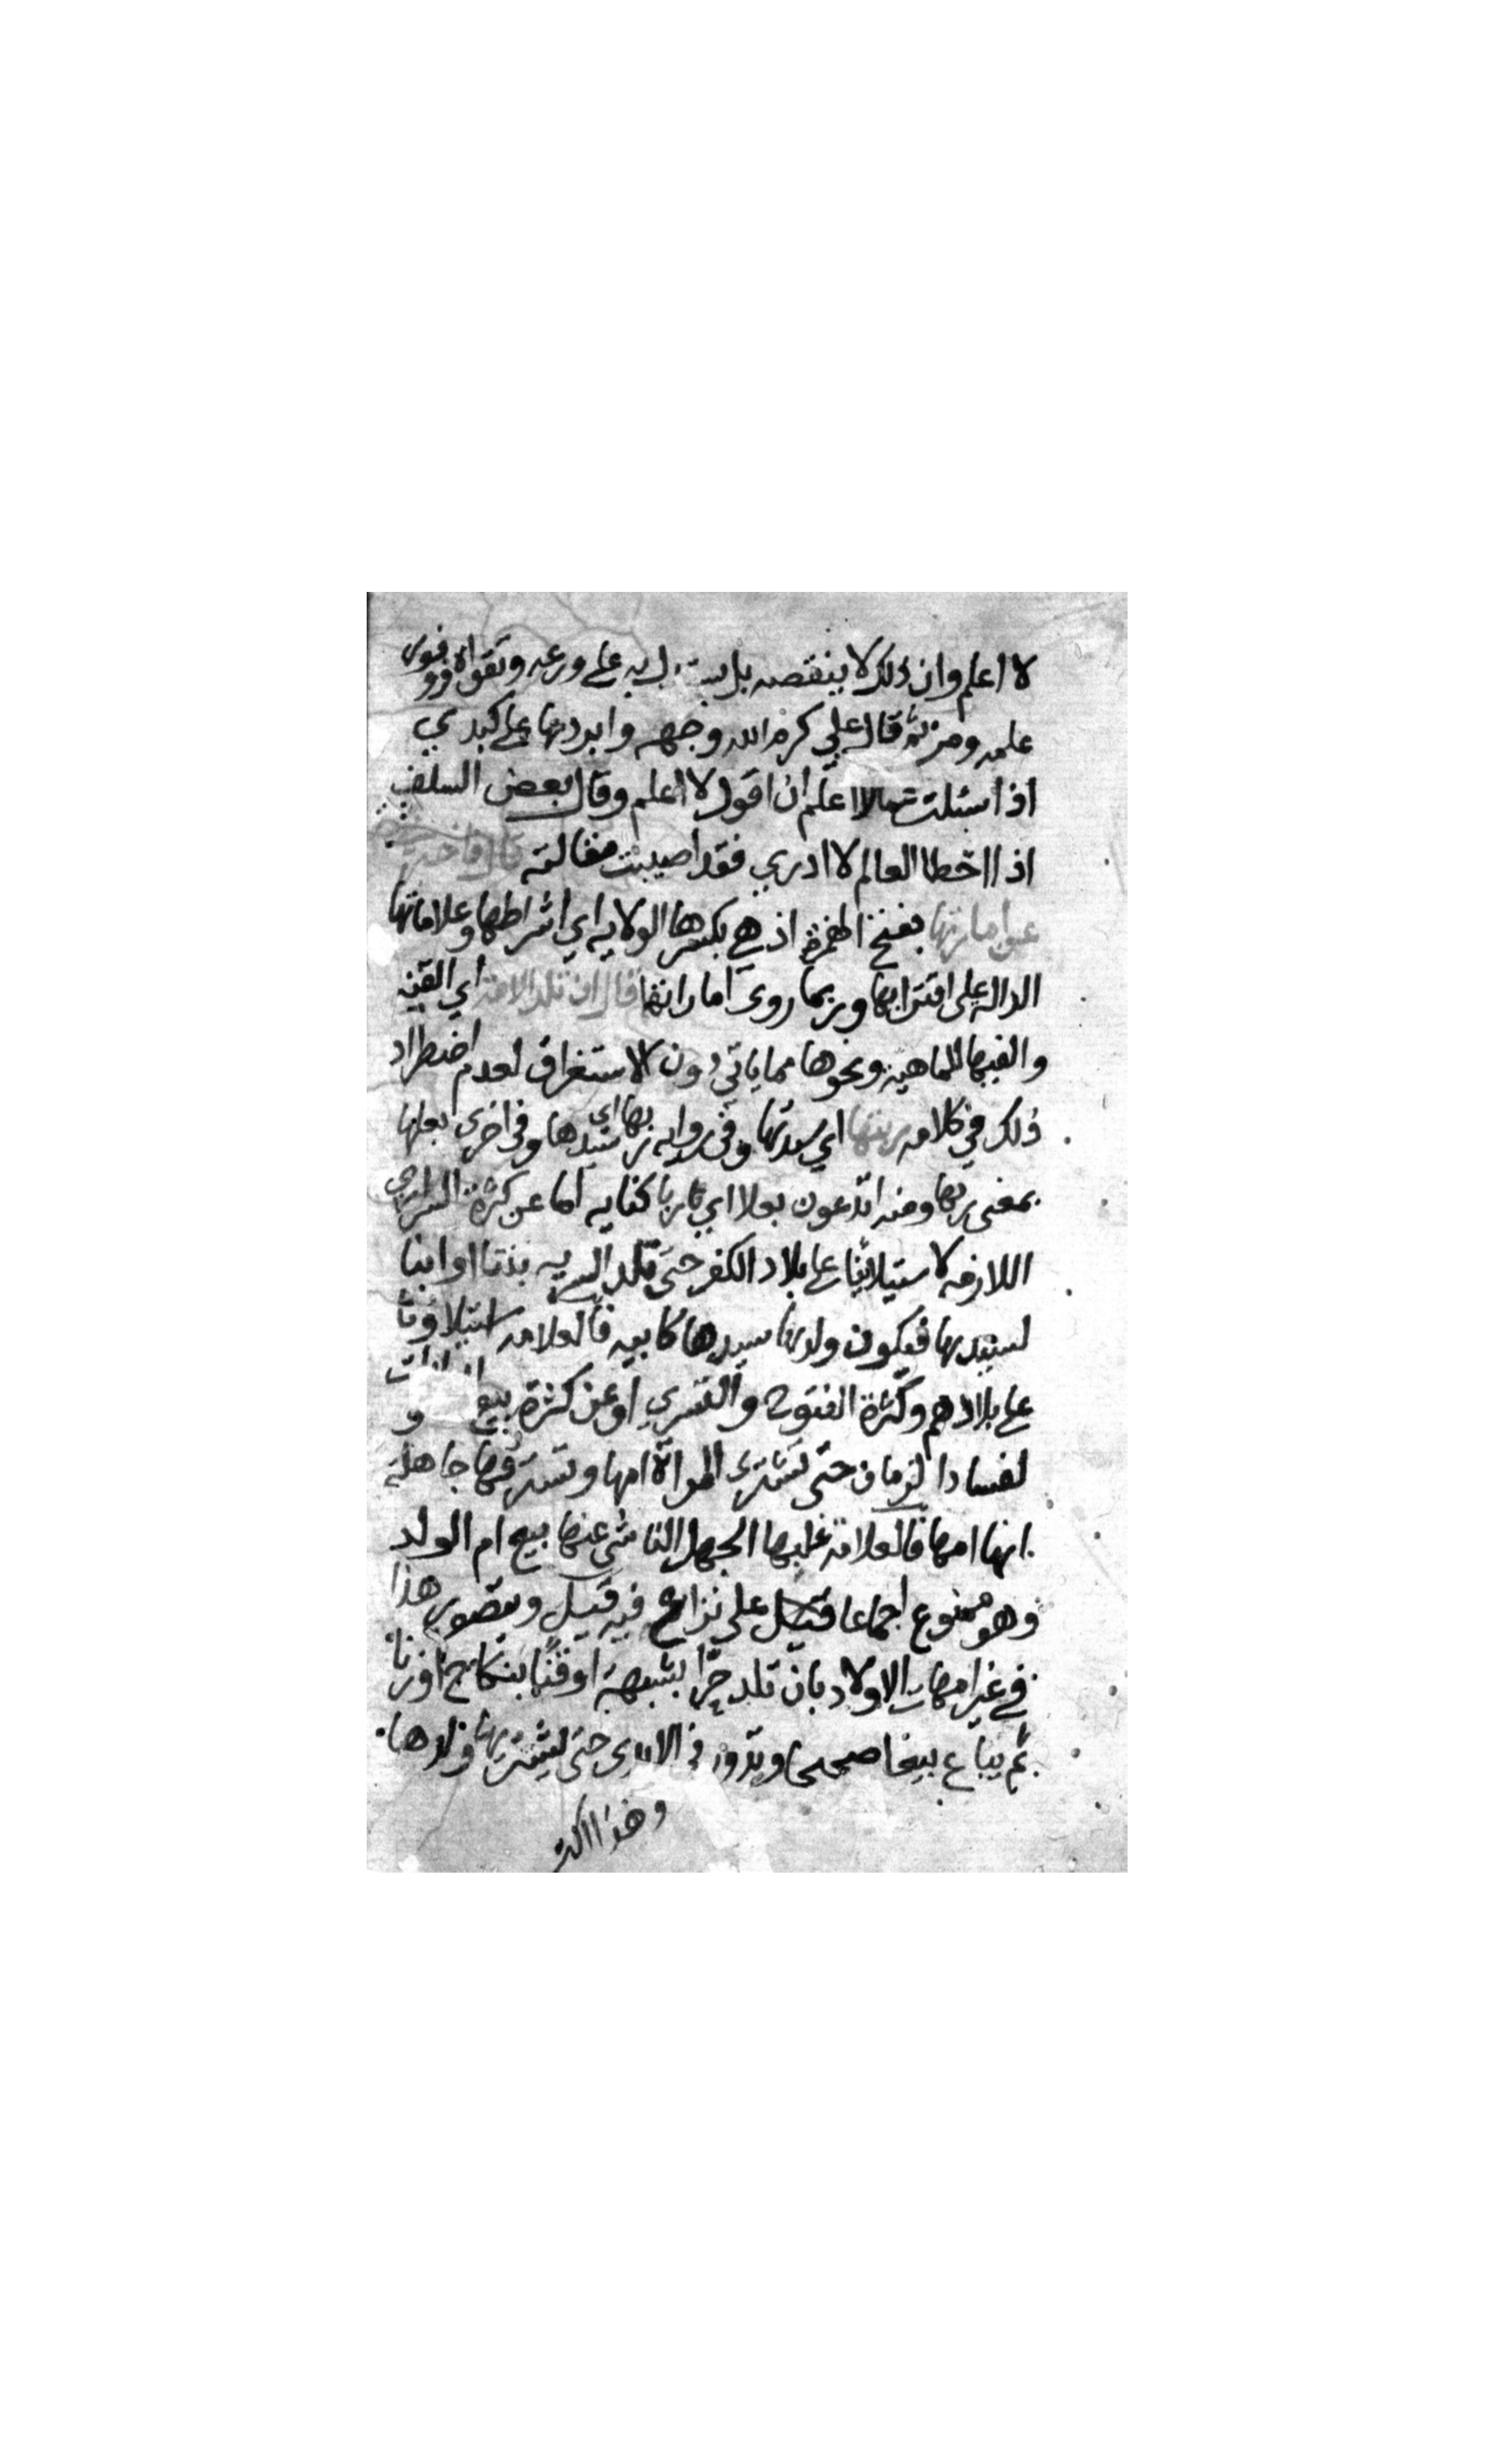 لا اعلم وان ذلك لا ينقصه بل يستدل به على ورعه وتقواه ووفور
علمه ومن ثم قال علي كرم الله وجهه وابردها على كبدي
اذا سئلت عما لا اعلم ان اقول لا اعلم وقال بعض السلف
اذا اخطا العالم لا ادري فقد اصيبت مقالته قال فاخبرني
عن اماراتها بفتح الهمزة اذ هي بكسرها الولايه اي اشراطها وعلاماتها
الداله على اقترابها وربما روي امارتها قال ان تلد الامة اي القنه
وال فيها للماهية ونحوها مما ياتي دون الاستغراق لعدم اضطراد
ذلك في كلامه ربتها اي سيدتها وفي روايه ربها اي سيدها وفي اخرى بعلها
بمعنى ربها ومنه اتدعون بعلا اي ربا كنايه اما عن كثرة السراري
اللازمه لاستيلائنا على بلاد الكفر حتى تلد السريه بنتا او ابنا
لسيدها فيكون ولدها سيدها كابيه فالعلامه استيلاؤنا
على بلادهم وكثرة الفتوح والتسري او عن كثرة بيع
لفساد الزمان حتى تشتري المراة امها وتسترقها جاهلة
انها امها فالعلامة غلبها الجهل الناشي عنها بيع ام الولد
وهو ممنوع اجماعا قيل على نزاع فيه قيل وتصوير هذا
في غير امهات الاولاد بان تلد حرا بشبهة او قنا بنكاح او زنا
ثم يباع بيعا صحيحا وتدور في الايدي حتى يشتريها ولدها
وهذا اكثر